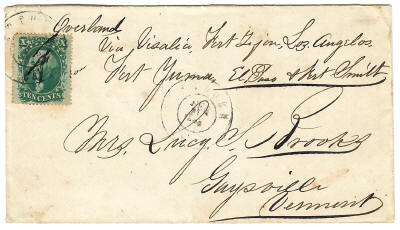 Overland
Via Visalia, Fort Tejon Los Angelos
Fort Yuma, El Paso & Fort Smith
TEN CENTS
Mrs. Lucy S. Brooks
Gaysville
Vermont